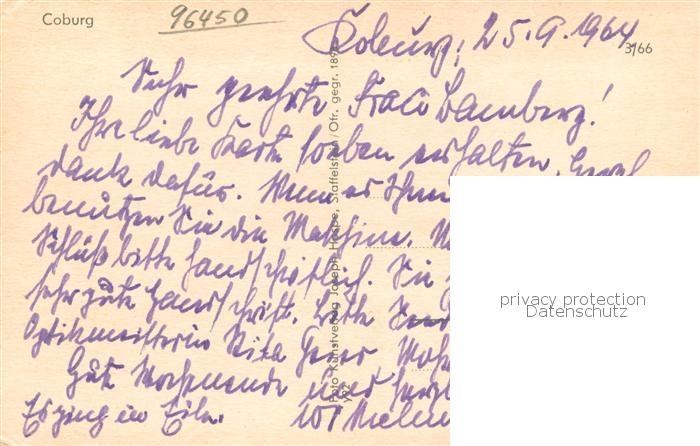 Coburg
96450
Coburg, 25.9.1964
3/66
Sehr geehrte Frau Bamberg!
Ihre liebe Karte soeben erhalten. Herzl.
dank dafür. Wenn es Ihnen
benützen Sie die Maschine.
Schluß bitte handschriftlich. Sie
sehr gute Handschrift. Bitte
Optikmeisterin Rita
Gute Wochenende und herzl
Es ging in Eile.
Foto Kunstverlag Joseph Hospe, Staffelstein/Ofr. gegr. 189
privacy protection
Datenschutz